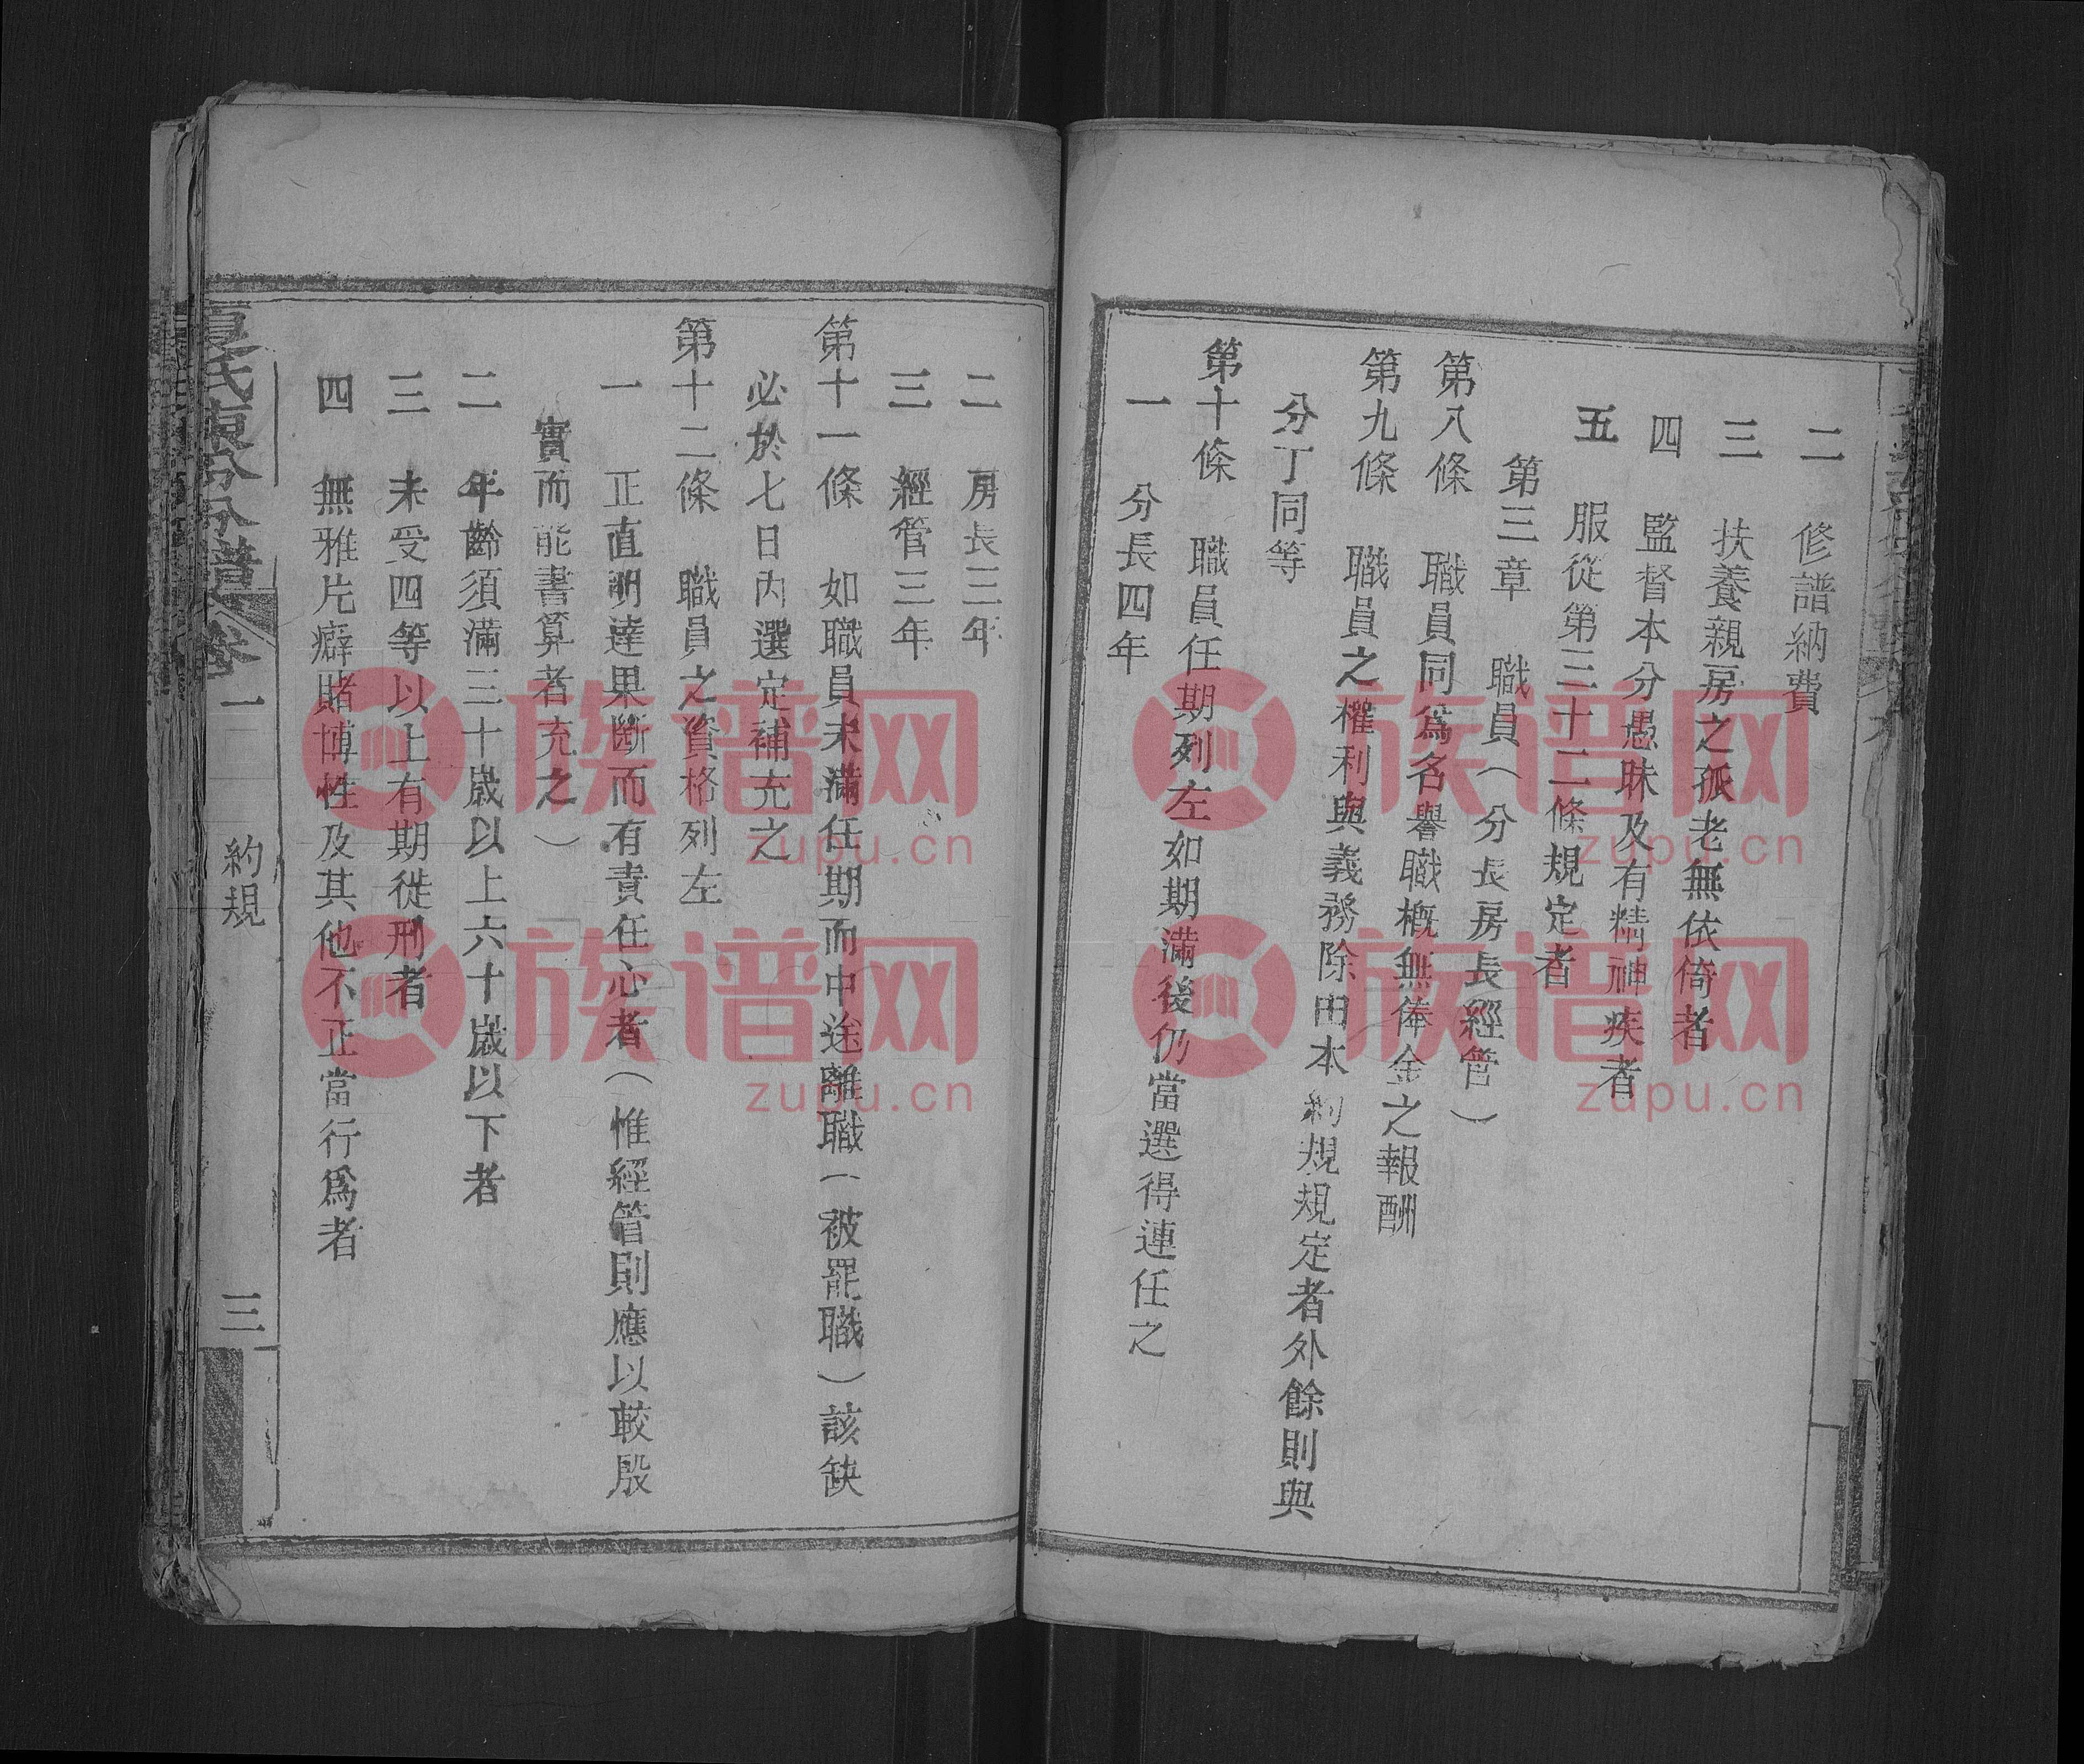 二　修譜納費
三　扶養親房之孤老無依倚者
四　監督本分愚昧及有精神疾者
五　服從第三十二條規定者
第三章　職員（分長房長經管）
第八條　職員同爲名譽職槪無俸金之報酬
第九條　職員之權利與義務除田本約規規定者外餘則與
分丁同等
第十條　職員任期列左如期滿後仍當選得連任之
一　分長四年
二　房長三年
三　經管三年
第十一條　如職員未滿任期而中途離職（被罷職）該缺
必於七日內選定補充之
第十二條　職員之資格列左
一　正直明達果斷而有責任心者（惟經管則應以較殷
實而能書算者充之）
二　年齡須滿三十歲以上六十歲以下者
三　未受四等以上有期徙刑者
四　無雅片癖賭博性及其他不正當行爲者
氏東分分譜卷一　約規　三
族谱网
zupu.cn
族谱网
zupu.cn
族谱网
zupu.cn
族谱网
zupu.cn